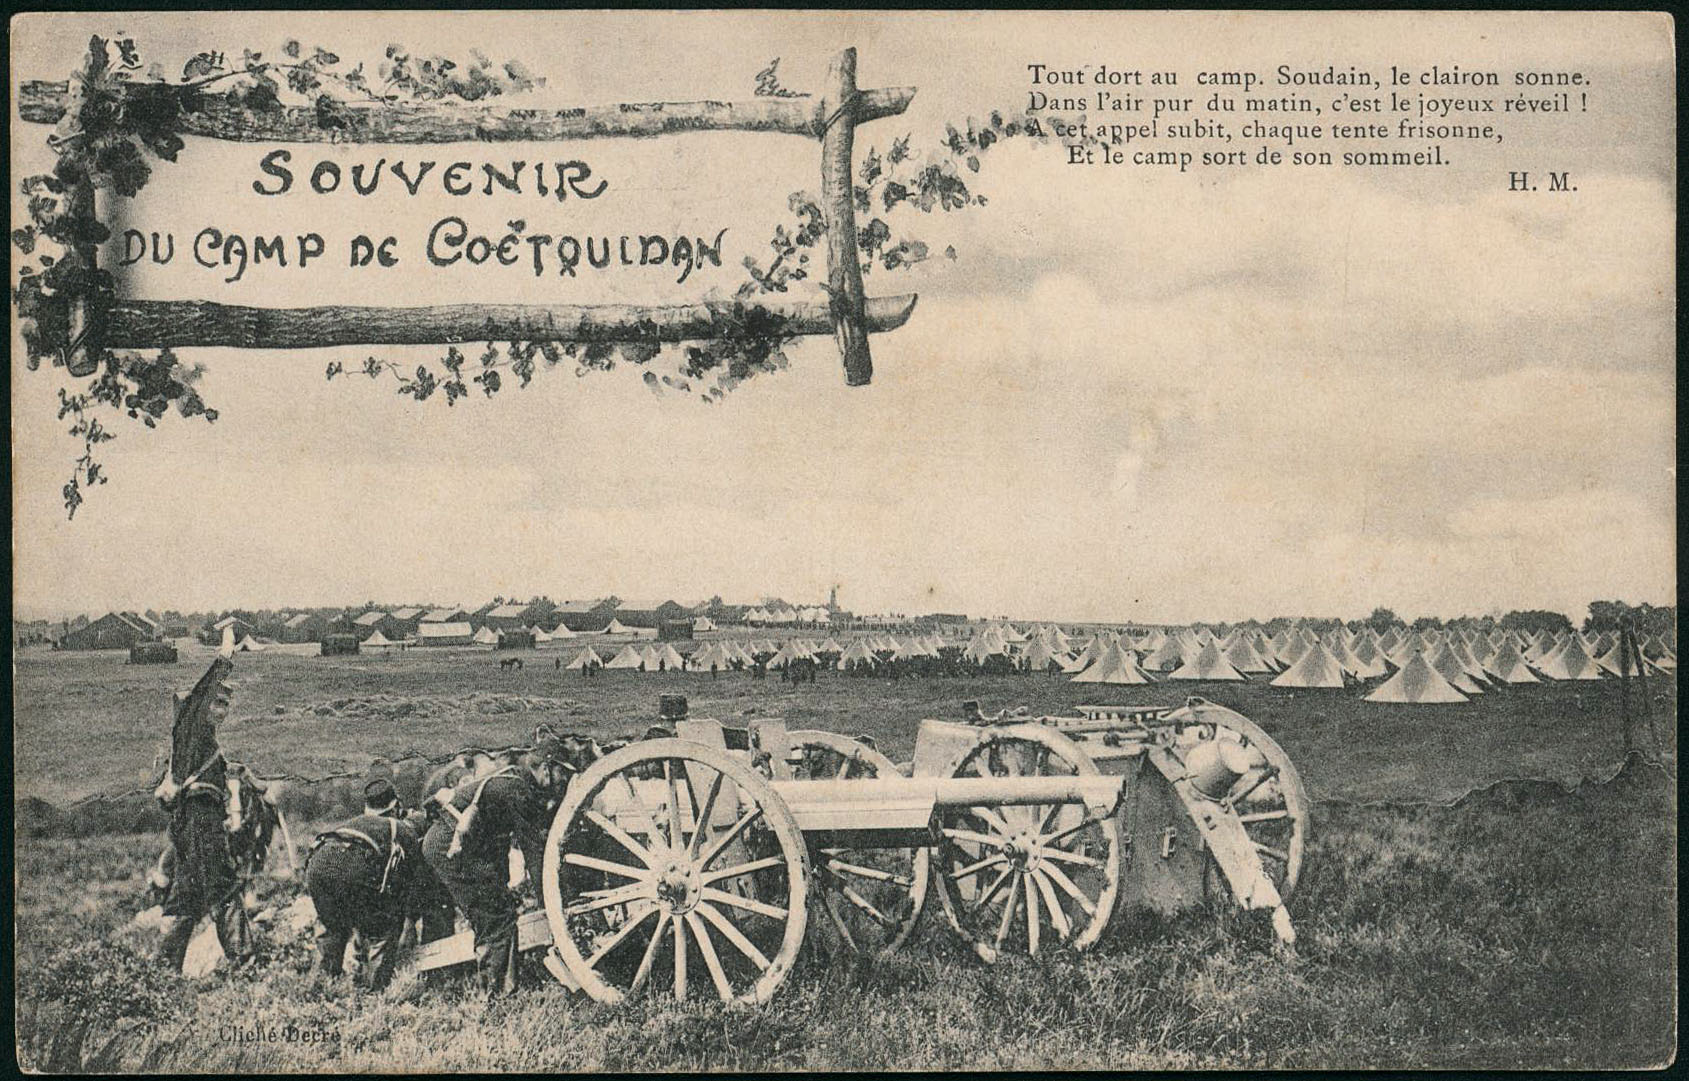 SOUVENIR
DU CAMP DE COËTQUIDAN
Tout dort au camp. Soudain, le clairon sonne.
Dans l'air pur du matin, c'est le joyeux réveil !
A cet appel subit, chaque tente frisonne,
Et le camp sort de son sommeil.
H. M.
Cliché Decré